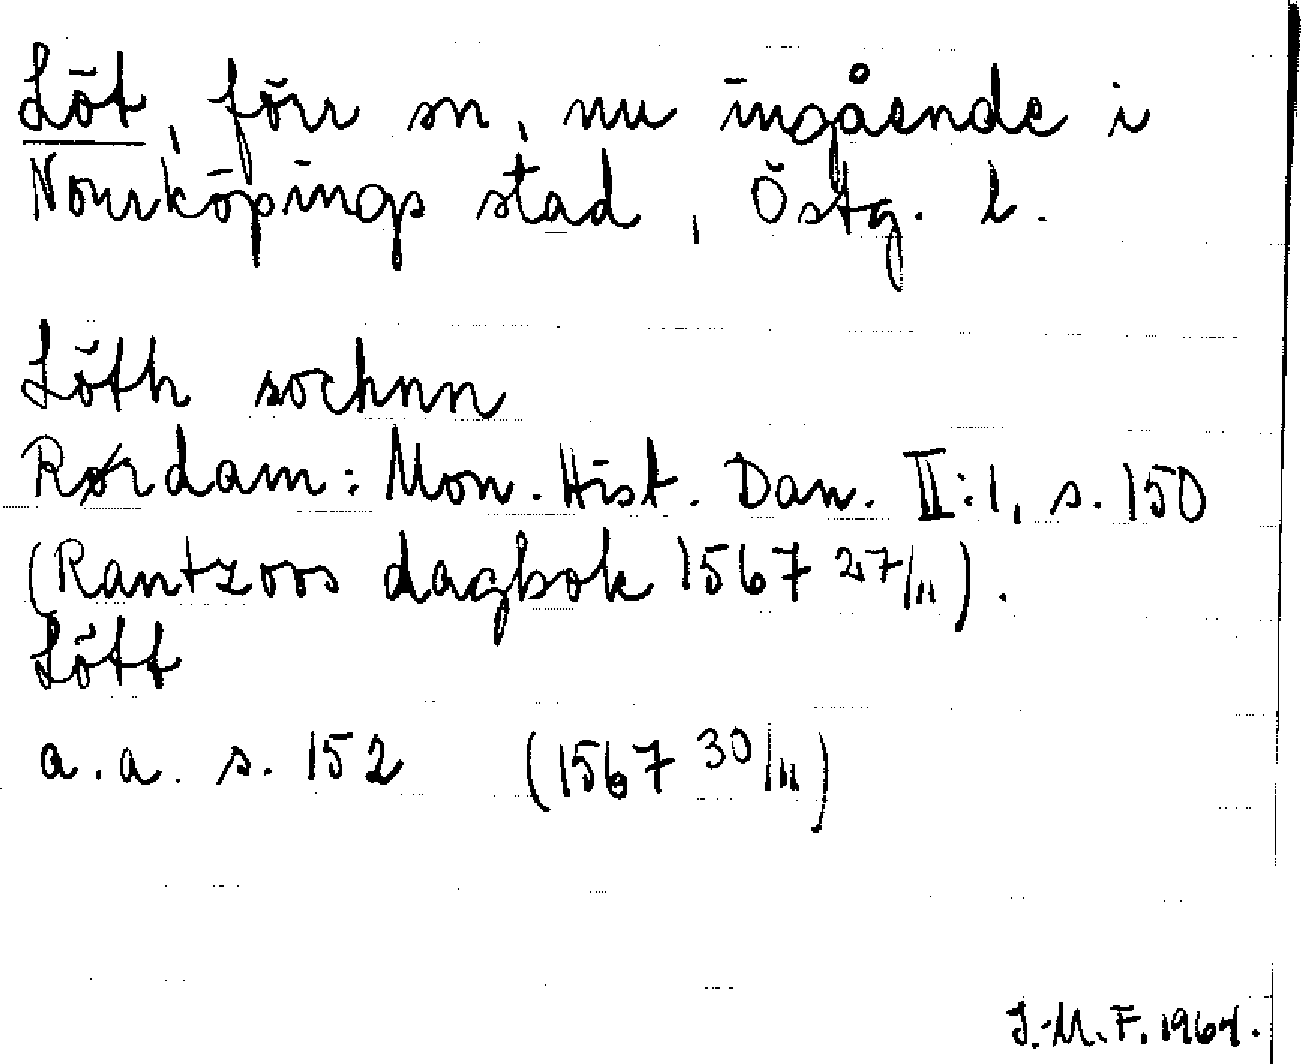 Löt, förr sn, nu ingående i
Norrköpings stad, Östg. l.
Löth sochnn
Rørdam: Mon. Hist. Dan. II:1, s. 150
(Rantzoos dagbok 1567 27/11).
Lött
a.a. s. 152 (1567 30/11)
J.-M.F. 1964.